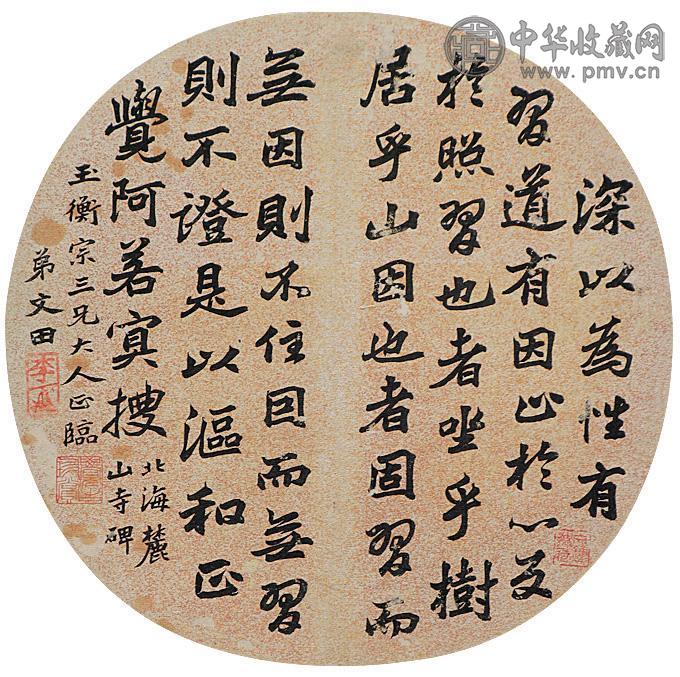 中华收藏网
www.pmv.cn
深以為性有
習道有因止於心反
於照習也者坐乎樹
居乎山因也者固習而
無因則不住因而無習
則不證是以漚和正
覺阿若冥搜
北海麓
山寺碑
玉衡宗三兄大人正臨
弟文田